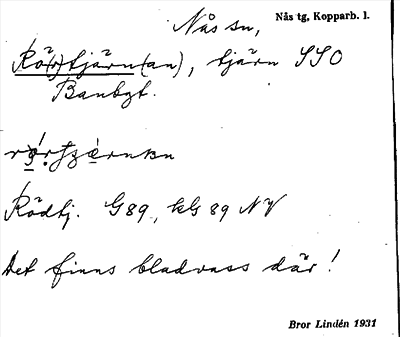 Nås sn, Nås tg, Kopparb. l.
Rö(r)tjärn(an), tjärn SSO
Banbgt.
Rödtj. G89, kG 89 NV
Det finns bladvass där!
Bror Lindén 1931